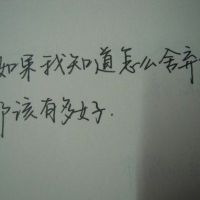 如果我知道怎么舍弃
那该有多好.